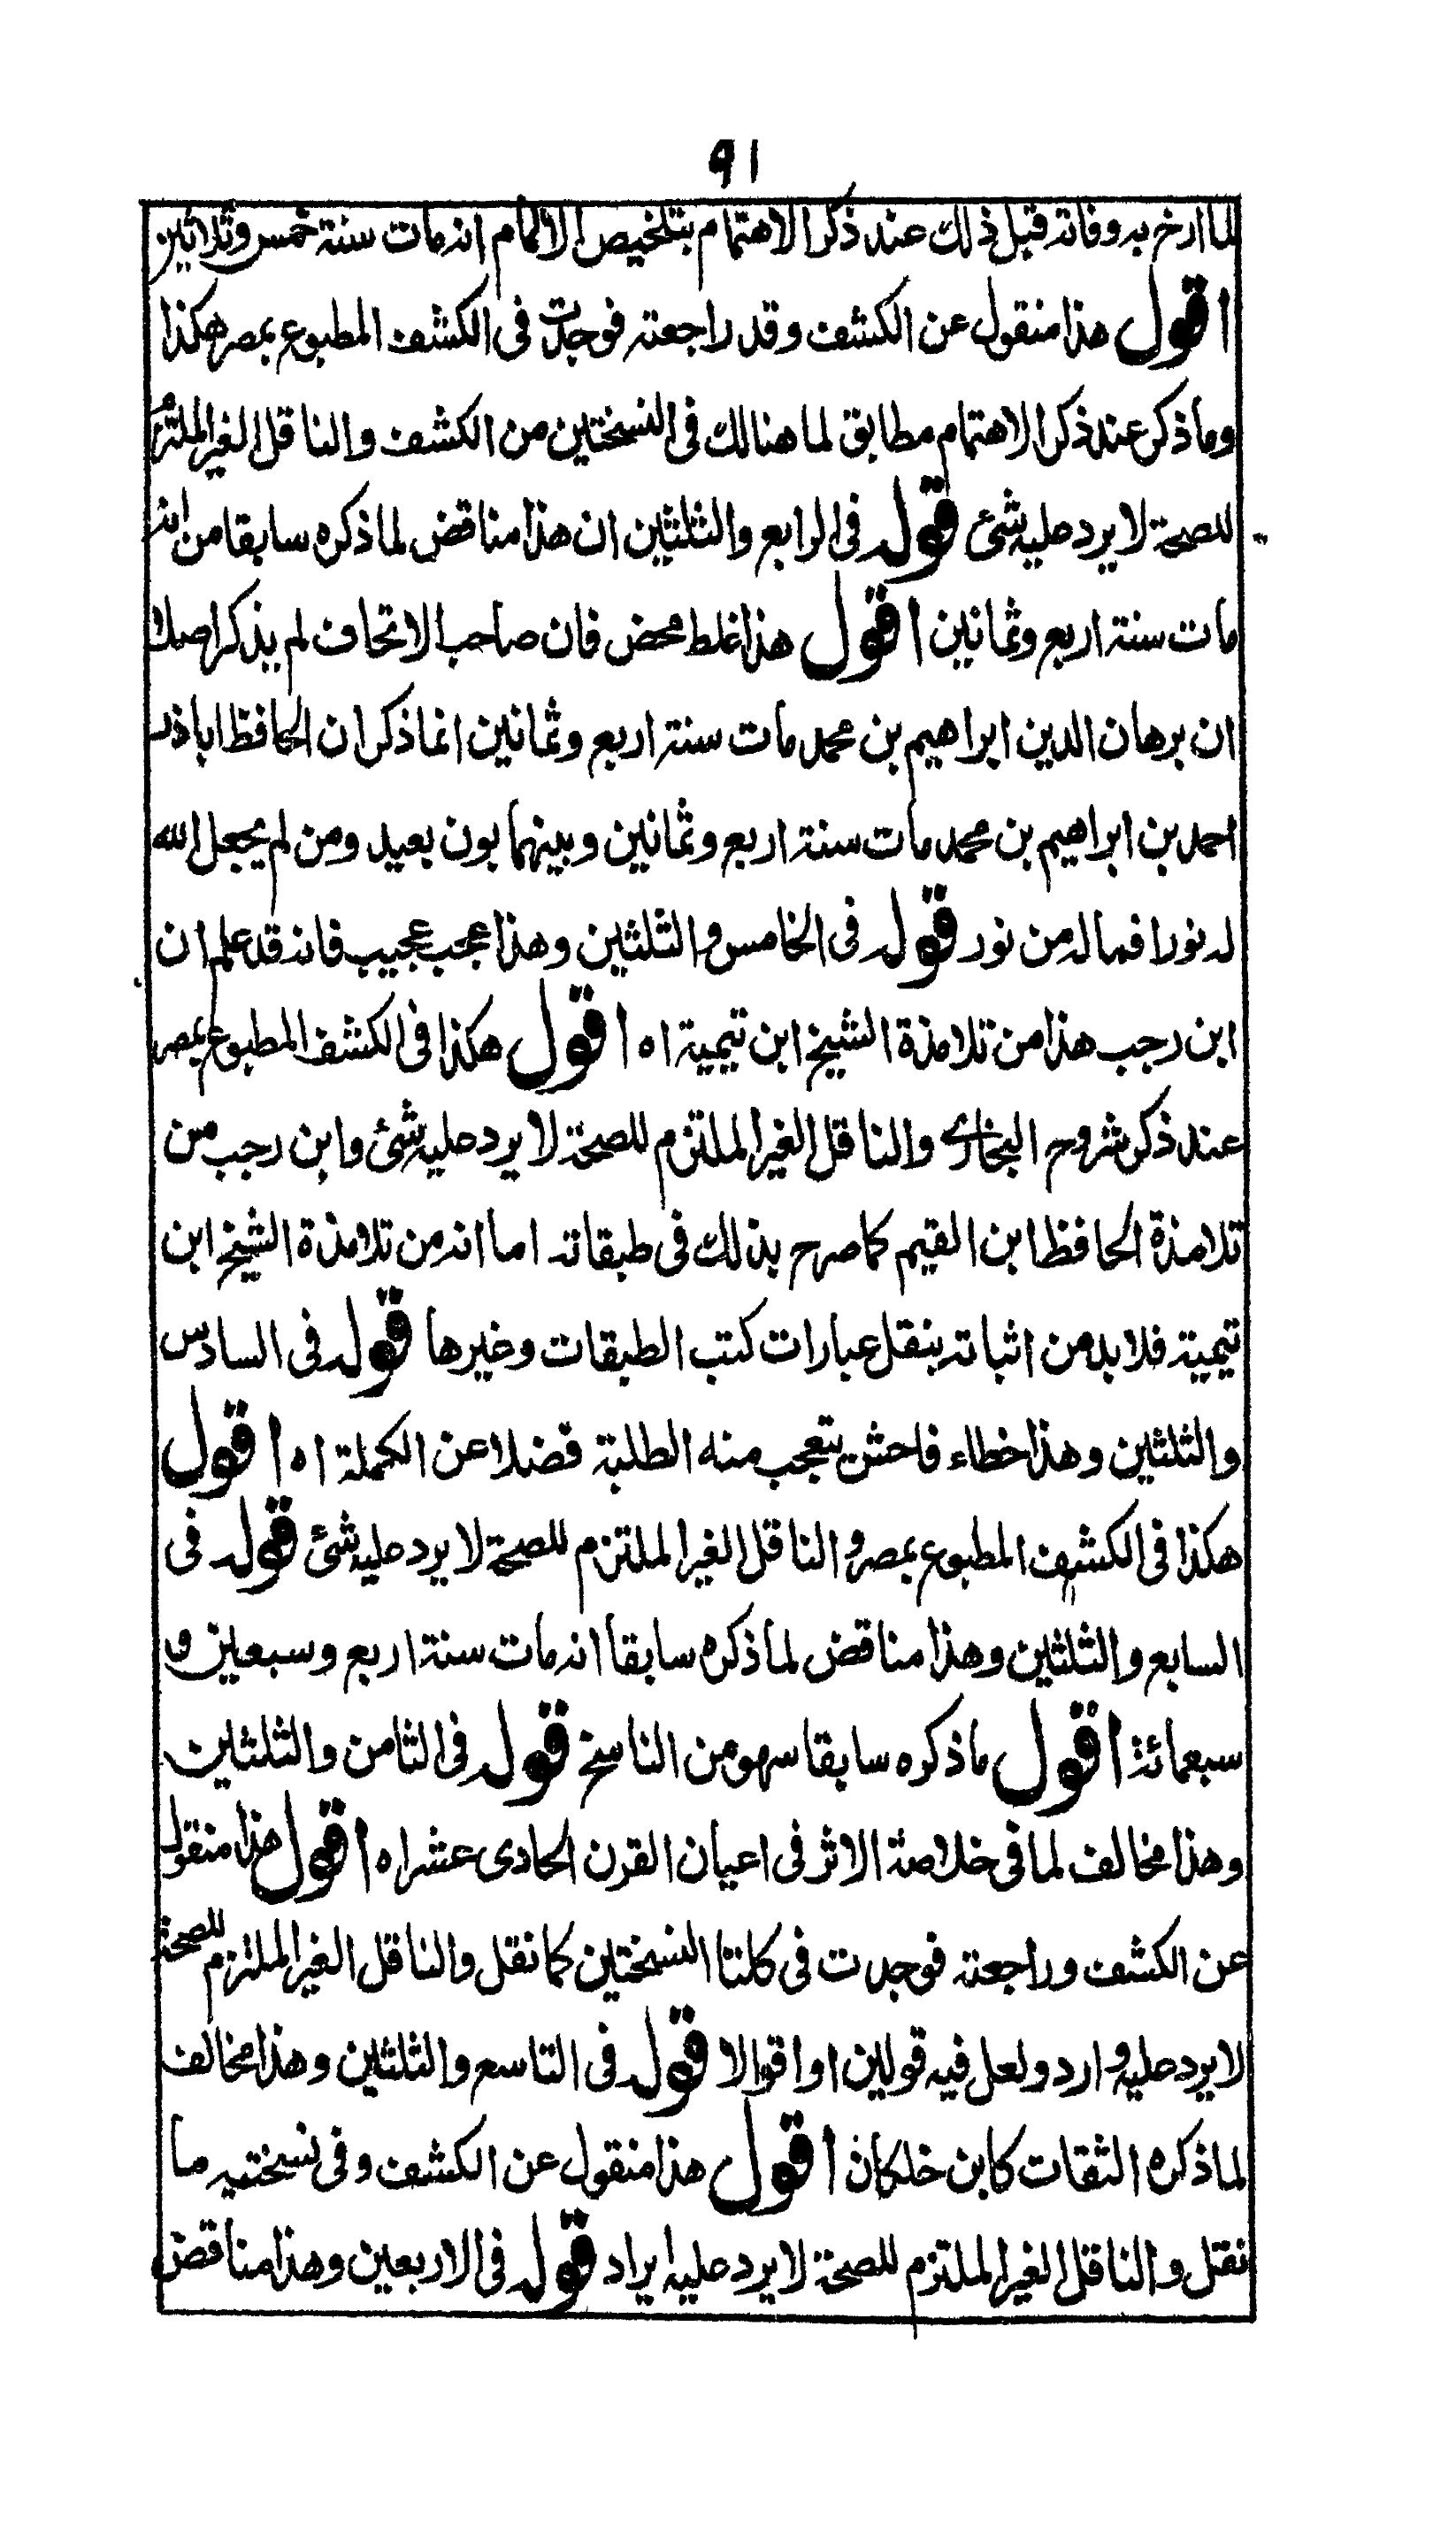 ٩١
لما ارخ به وفاته قبل ذلك عند ذكر الاهتمام بتلخيص الالمام انه مات سنة خمس وثلاثين
اقول هذا منقول عن الكشف وقد راجعته فوجدت فى الكشف المطبوع بمصر هكذا
وما ذكر عند ذكر الاهتمام مطابق لما هنالك فى النسختين من الكشف والناقل الغير الملتزم
للصحة لا يرد عليه شئ قوله فى الرابع والثلثين ان هذا مناقض لما ذكره سابقا من انه
مات سنة اربع وثمانين اقول هذا غلط محض فان صاحب الاتحاف لم يذكر اصلا
ان برهان الدين ابراهيم بن محمد مات سنة اربع وثمانين انما ذكر ان الحافظ اباذر
احمد بن ابراهيم بن محمد مات سنة اربع وثمانين وبينهما بون بعيد ومن لم يجعل الله
له نورا فما له من نور قوله فى الخامس والثلثين وهذا عجب عجيب فانه قد علم ان
ابن رجب هذا من تلامذة الشيخ ابن تيمية اه اقول هكذا فى الكشف المطبوع بمصر
عند ذكر شروح البخارى والناقل الغير الملتزم للصحة لا يرد عليه شئ وابن رجب من
تلامذة الحافظ ابن القيم كما صرح بذلك فى طبقاته اما انه من تلامذة الشيخ ابن
تيمية فلا بد من اثباته بنقل عبارات كتب الطبقات وغيرها قوله فى السادس
والثلثين وهذا خطاء فاحش يتعجب منه الطلبة فضلا عن الكملة اه اقول
هكذا فى الكشف المطبوع بمصر والناقل الغير الملتزم للصحة لا يرد عليه شئ قوله فى
السابع والثلثين وهذا مناقض لما ذكره سابقا انه مات سنة اربع وسبعين و
سبعمائة اقول ما ذكره سابقا سهو من الناسخ قوله فى الثامن والثلثين
وهذا مخالف لما فى خلاصة الاثر فى اعيان القرن الحادى عشر اه اقول هذا منقول
عن الكشف وراجعته فوجدت فى كلتا النسختين كما نقل والناقل الغير الملتزم للصحة
لا يرد عليه وارد ولعل فيه قولين او اقوالا قوله فى التاسع والثلثين وهذا مخالف
لما ذكره الثقات كابن خلكان اقول هذا منقول عن الكشف وفى نسختيه ما
نقل والناقل الغير الملتزم للصحة لا يرد عليه ايراد قوله فى الاربعين وهذا مناقض